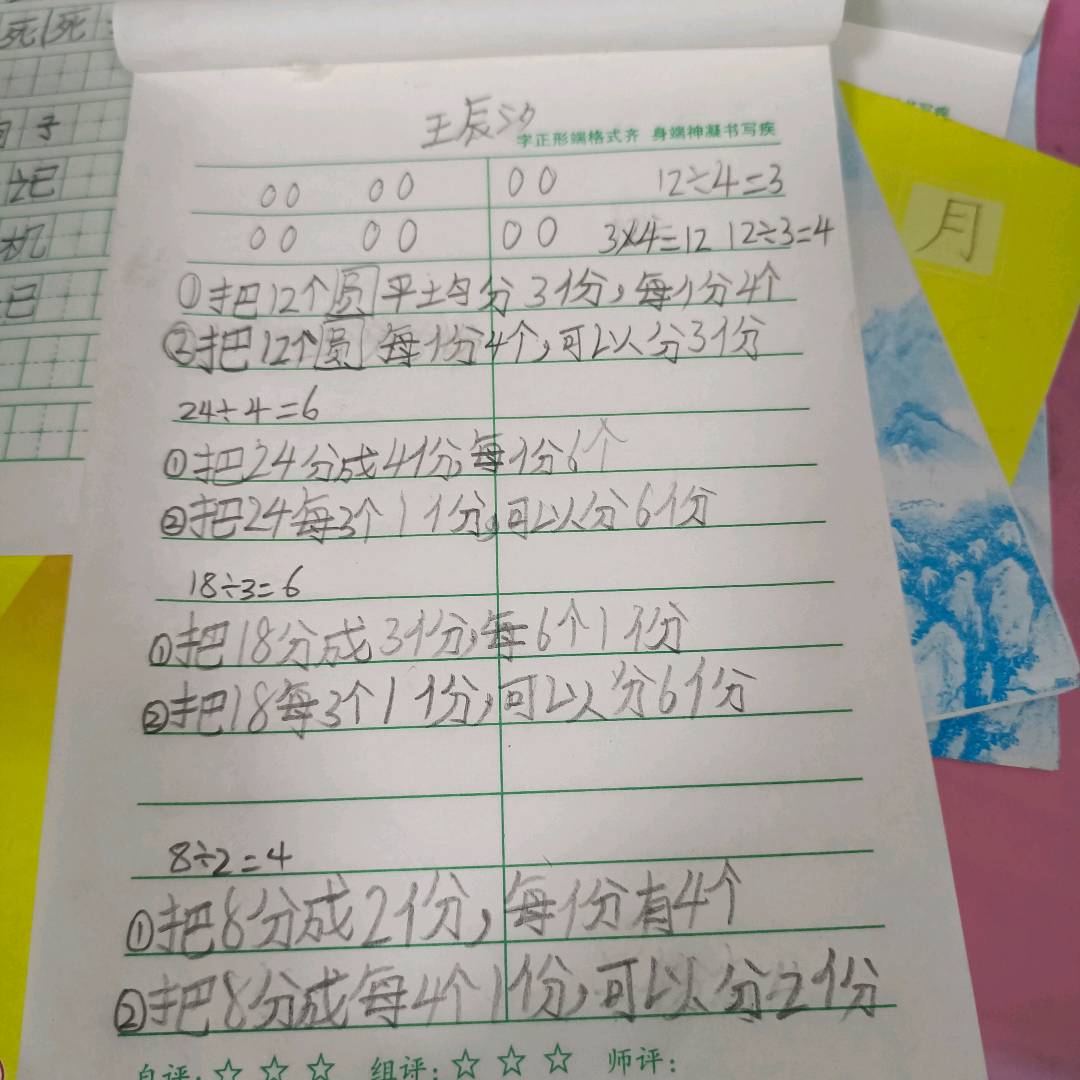 死死
子
吧
机
巴
王辰汐
字正形端格式齐 身端神凝书写疾
00 00 00 12÷4=3
00 00 00 3×4=12 12÷3=4
①把12个圆平均分3份,每份4个
②把12个圆每份4个,可以分3份
24÷4=6
①把24分成4份,每份6个
②把24每3个1份,可以分6份
18÷3=6
①把18分成3份,每6个1份
②把18每3个1份,可以分6份
8÷2=4
①把8分成2份,每份有4个
②把8分成每4个1份,可以分2份
自评:☆ ☆ ☆ 组评:☆ ☆ ☆ 师评:
月